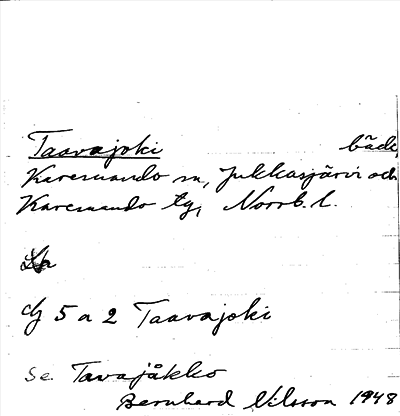 Taavajoki bäck,
Karesuando sn, Jukkasjärvi och
Karesuando tg, Norrb. l.
dj 5 a 2 Taavajoki
Se. Tavajåkko
Bernhard Nilsson 1948